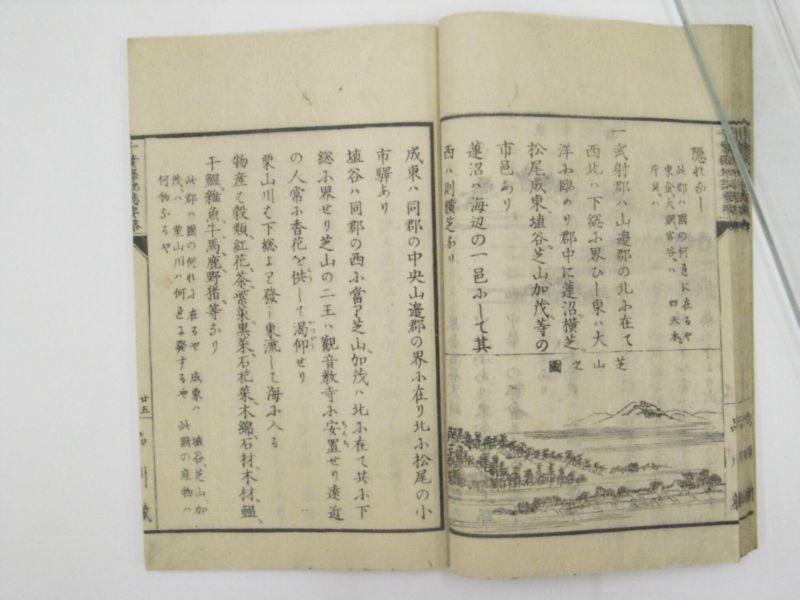 隠れなし
此郡ハ國の何邊に在るや
東金大網宮谷、ハ　四天木、
片貝ハ
一武射郡ハ山邊郡の北ふ在て
西北ハ下総ふ界ひし東ハ大
洋ふ臨めり郡中に蓮沼、横芝、
松尾成東、埴谷、芝山加茂、等の
市邑あり
蓮沼ハ海辺の一邑ふして其
西ハ則横芝なり
芝山之圖
成東ハ同郡の中央山邊郡の界ふ在り北ふ松尾の小
市驛あり
埴谷ハ同郡の西ふ當り芝山加茂ハ北ふ在て其ふ下
総ふ界せり芝山の二王ハ觀音教寺ふ安置せり遠近
の人常ふ香花を供して渇仰せり
栗山川ハ下総より發し東流して海ふ入る
物産ハ穀類、紅花、茶、紫菜、黒菜、石花菜、木綿、石材、木材、鰮、
干鰮、雜魚、牛馬、鹿、野猪、等なり
此郡ハ國の何れふ在るや　成東ハ　埴谷、芝山、加
茂、ハ　栗山川ハ何邊に発するや　此國の産物ハ
何物なるや
廿五